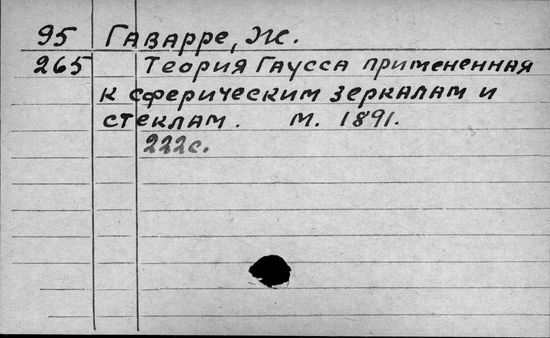 95 Гаварре, Ж.
265 Теория Гаусса примененная
к сферическим зеркалам и
стеклам. М. 1891.
222с.